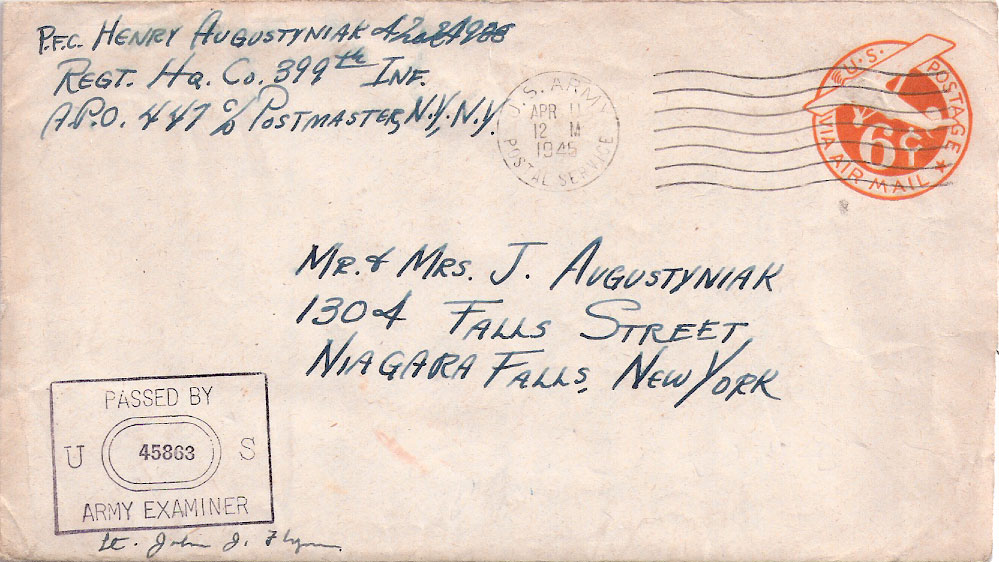 P.F.C. HENRY AUGUSTYNIAK
REGT. HQ. CO. 399th INF.
A.P.O. 447 c/o POSTMASTER, N.Y., N.Y.
U.S. ARMY
APR 11
12 M
1945
POSTAL SERVICE
U.S. POSTAGE
6¢
VIA AIR MAIL
MR. & MRS. J. AUGUSTYNIAK
1304 FALLS STREET,
NIAGARA FALLS, NEW YORK
PASSED BY
U 45863 S
ARMY EXAMINER
Lt. John J. Flynn